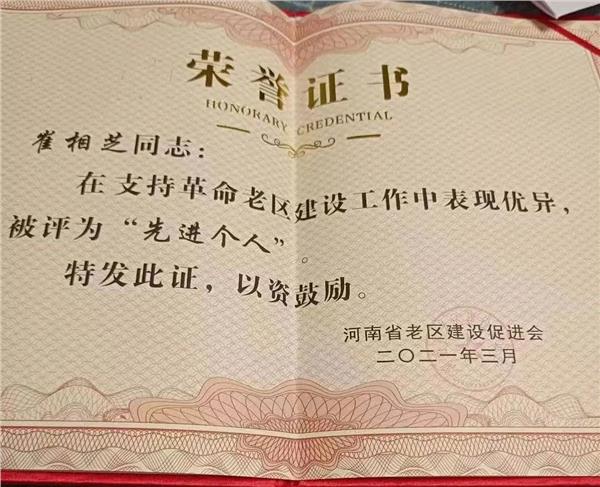 荣誉证书
HONORARY CREDENTIAL
崔相芝同志：
在支持革命老区建设工作中表现优异，
被评为“先进个人”。
特发此证，以资鼓励。
河南省老区建设促进会
二〇二一年三月